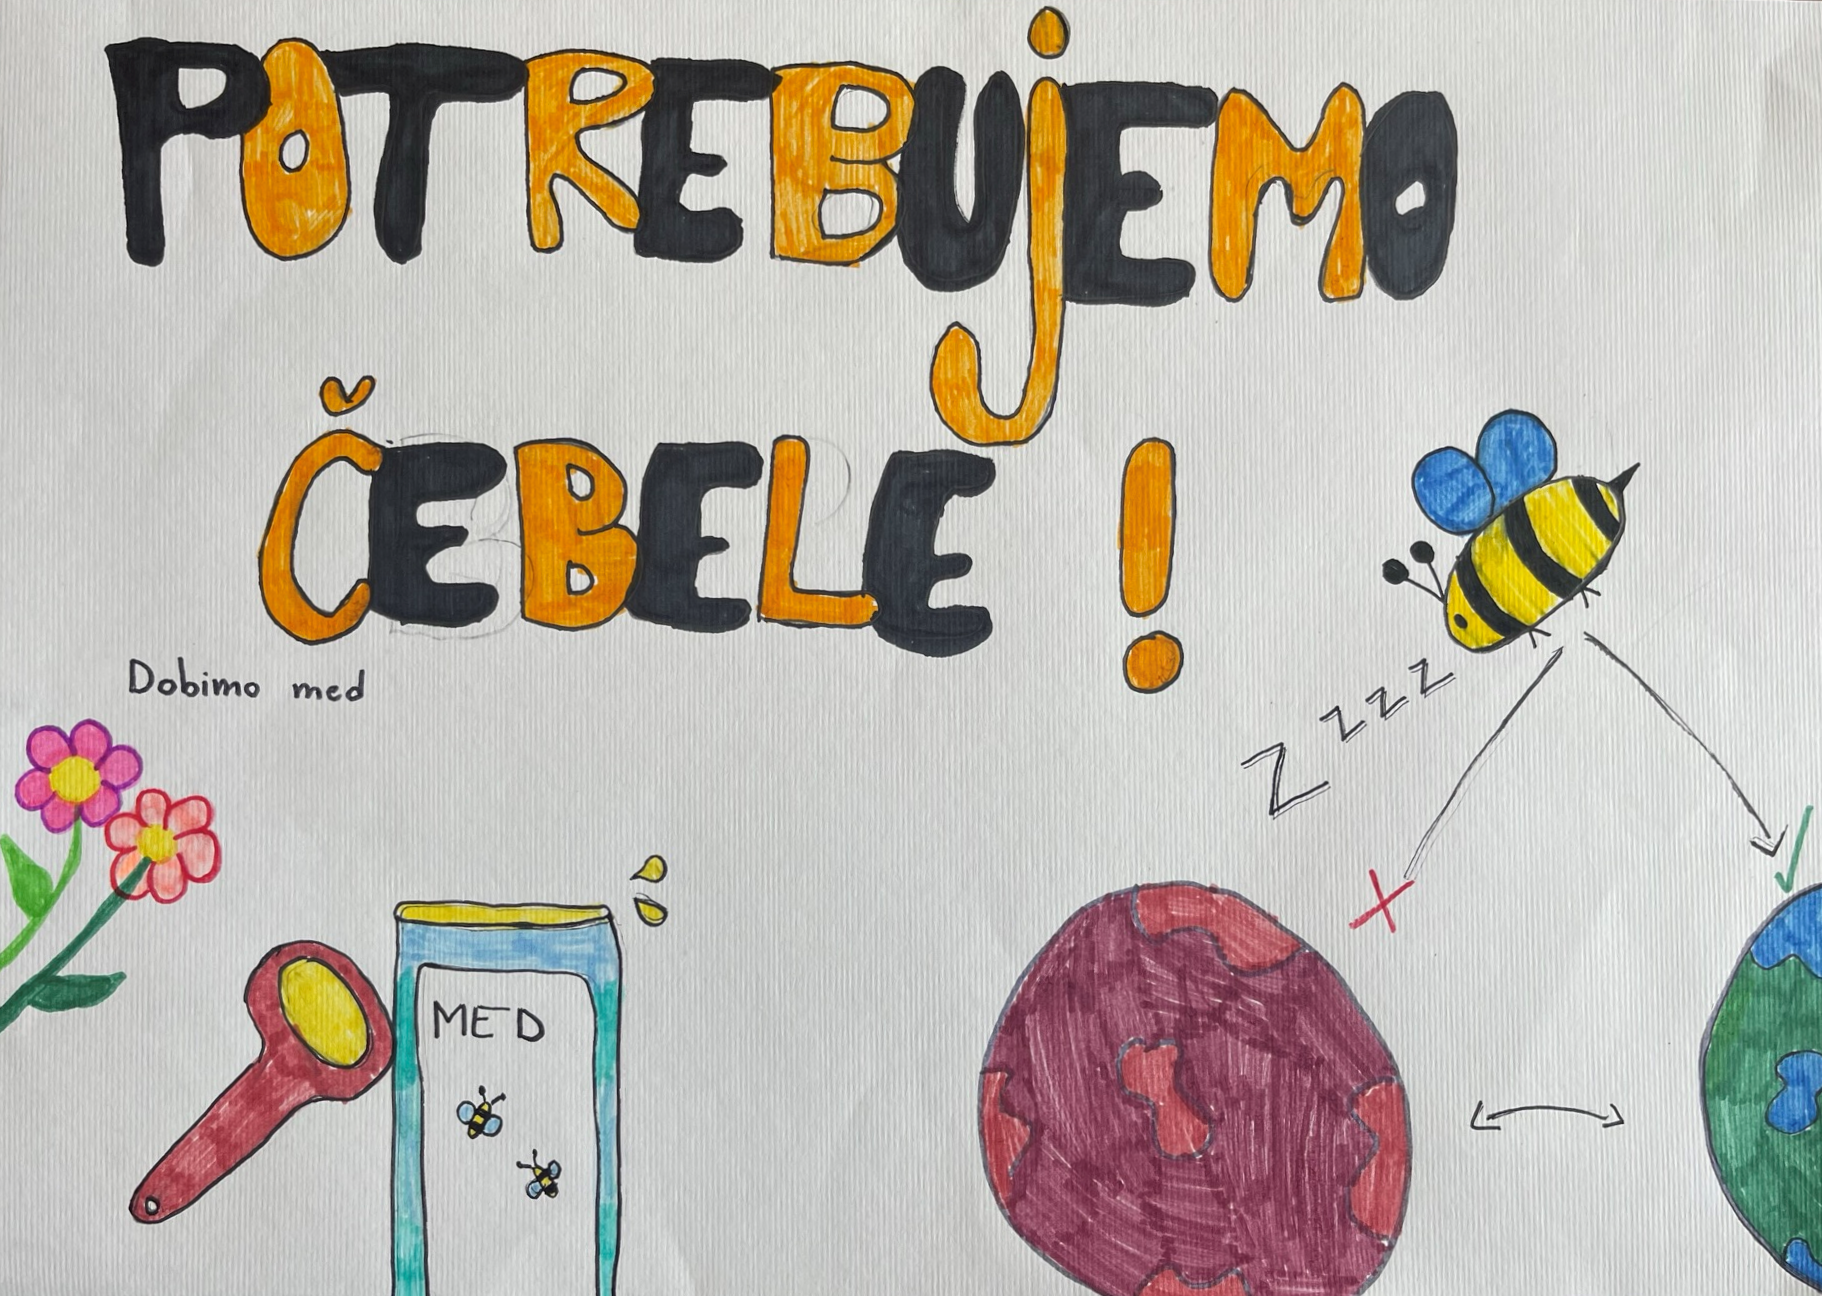 POTREBUjEMO
ČEBELE !
Dobimo med
Z z z z
MED